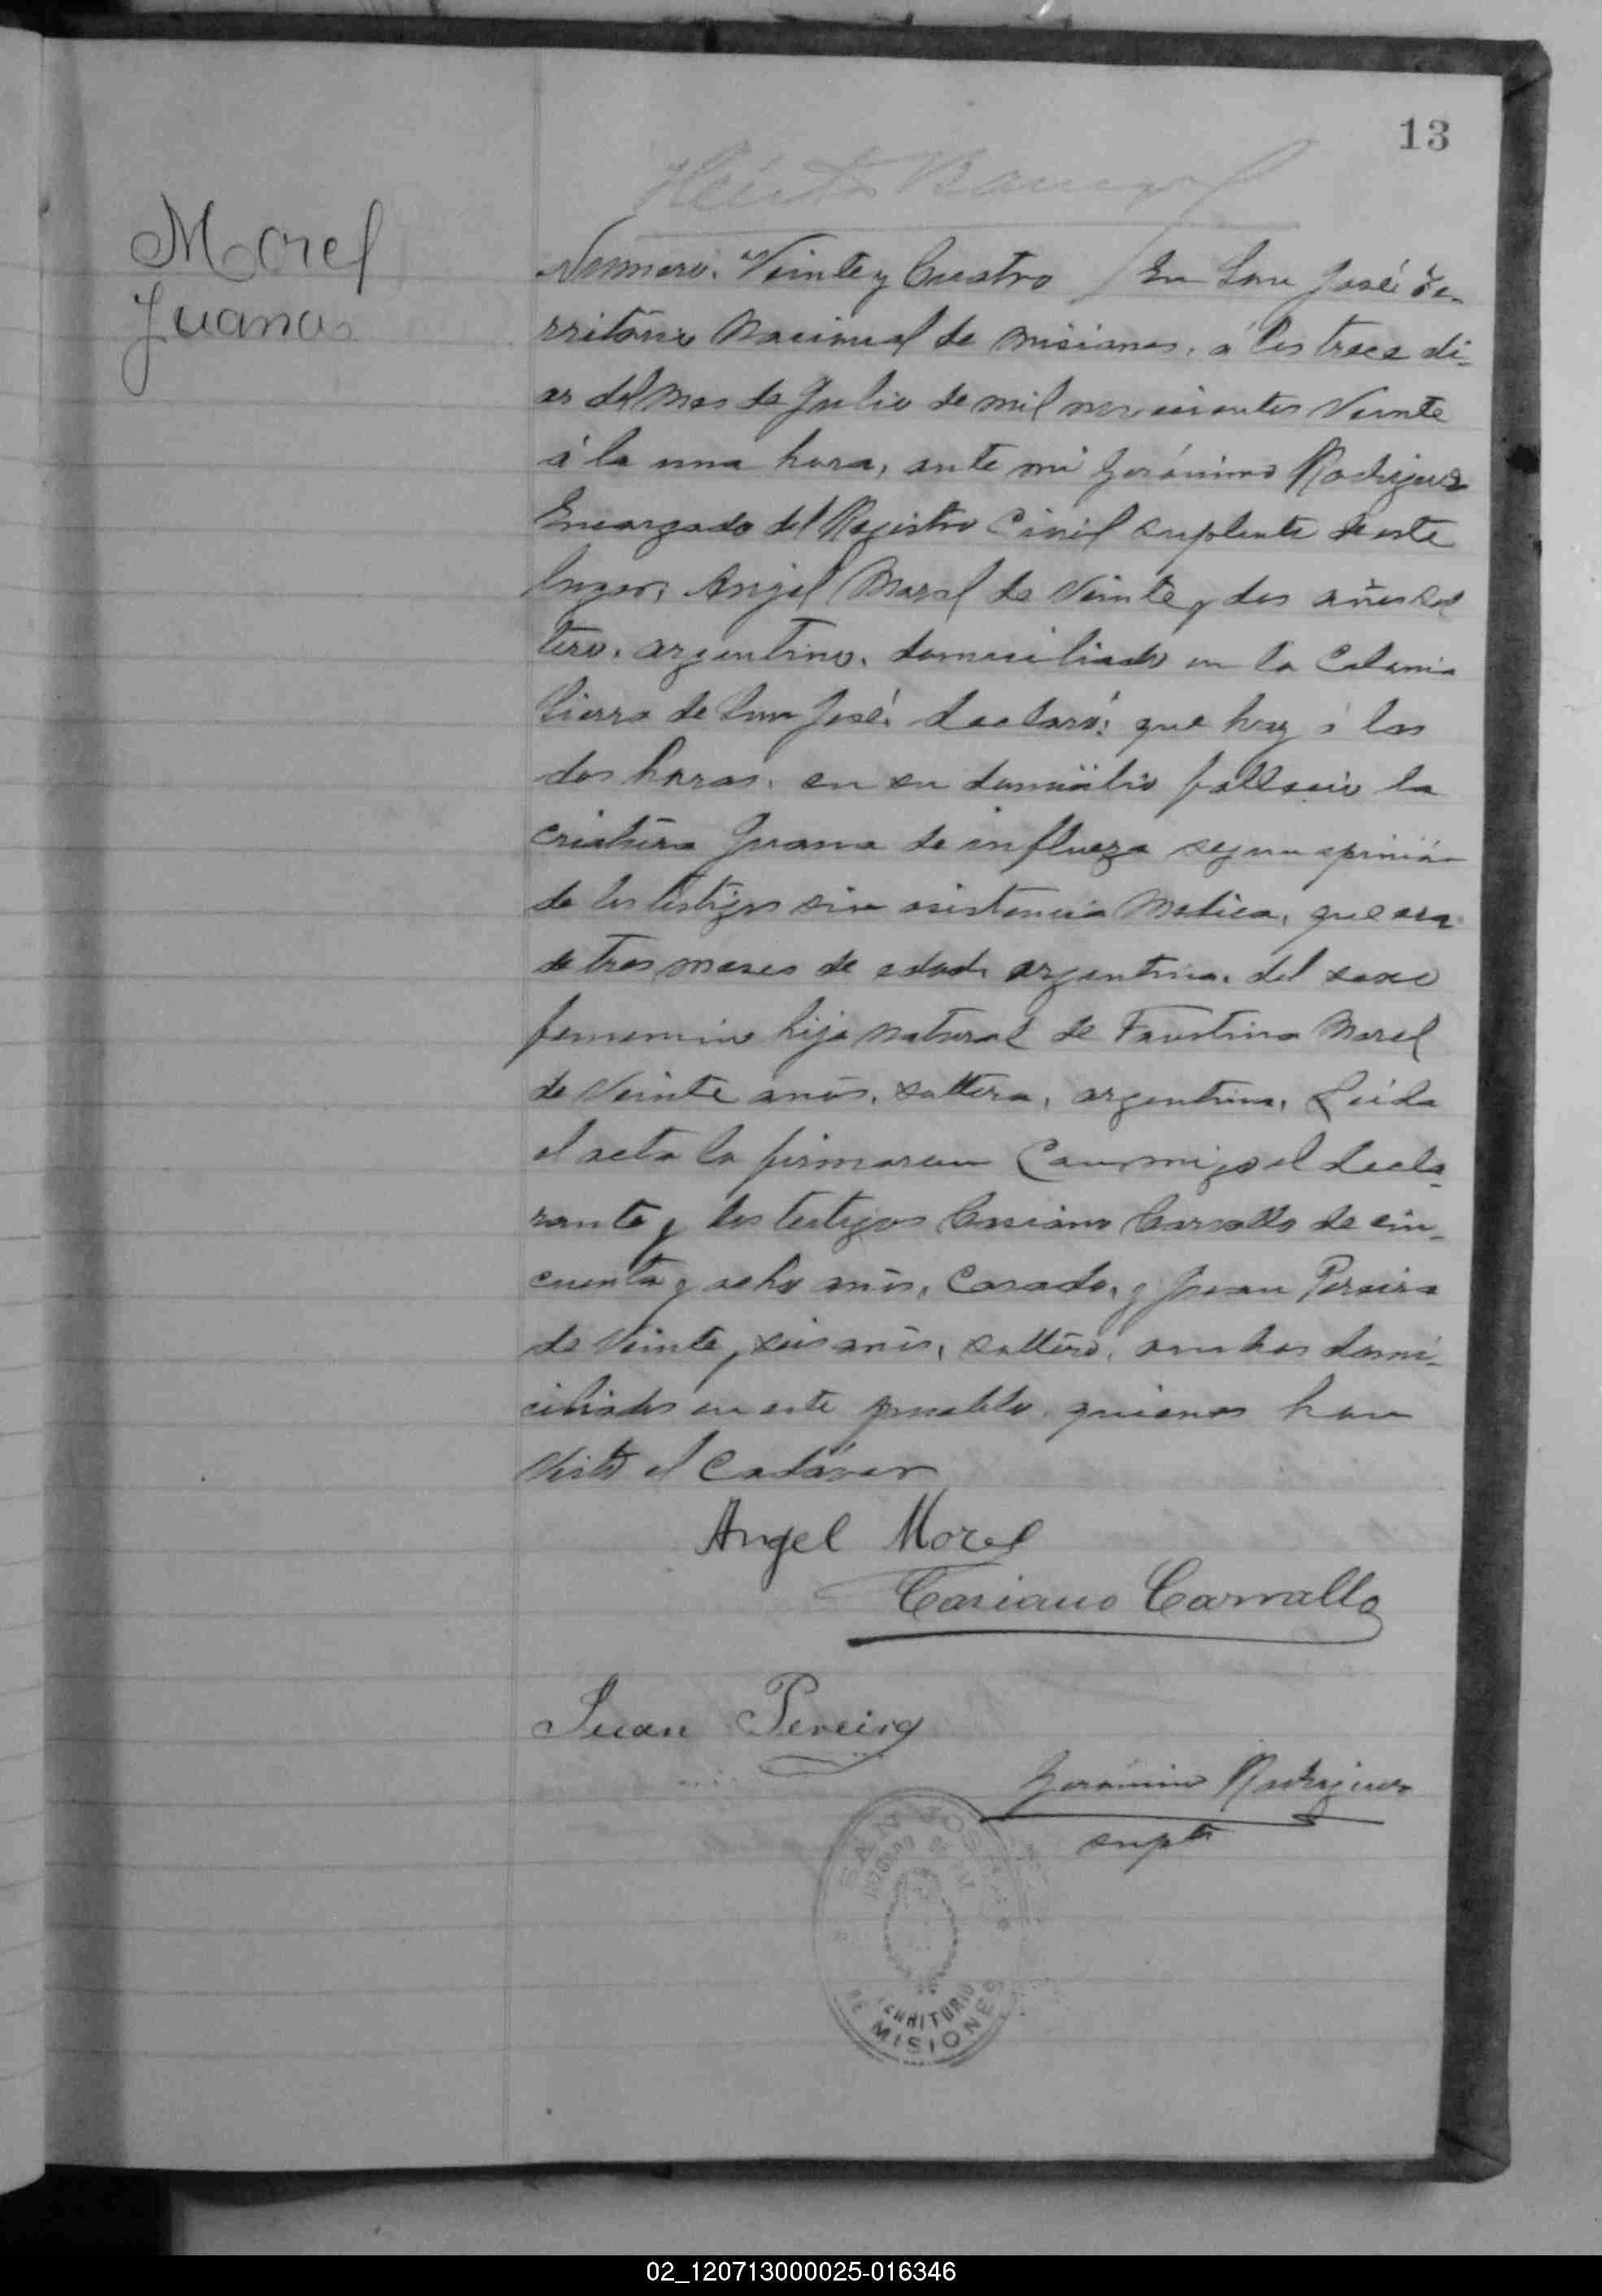 13
Morel
Juana
Numero. Veinte y Cuatro / En San José Te-
rritorio Nacional de misiones, á los trece di-
as del Mes de Julio de mil novecientos Veinte
á la una hora, ante mi Gerónimo Rodriguez
Encargado del Registro Civil Suplente de este
lugar, Angel Morel de Veinte y dos años Sol
tero, argentino, domiciliado en la Colonia
Sierra de San José, declaró: que hoy á las
dos horas, en su domicilio falleció la
criatura Juana de influeza segun opinión
de los testigos sin asistencia Medica, que era
de tres meses de edad, argentina, del sexo
femenino hija natural de Faustina Morel
de Veinte años, soltera, argentina, Leida
el acta la firmaron Conmigo el decla-
rante y los testigos Casiano Carvallo de cin-
cuenta y ocho años, Casado, y Juan Pereira
de Veinte y seis años, soltero, ambos domi-
ciliados en este pueblo quienes han
Visto el Cadáver
Angel Morel
Casiano Carvallo
Juan Pereira
Gerónimo Rodriguez
supte
SAN JOSE
TERRITORIO
DE MISIONES
02_120713000025-016346